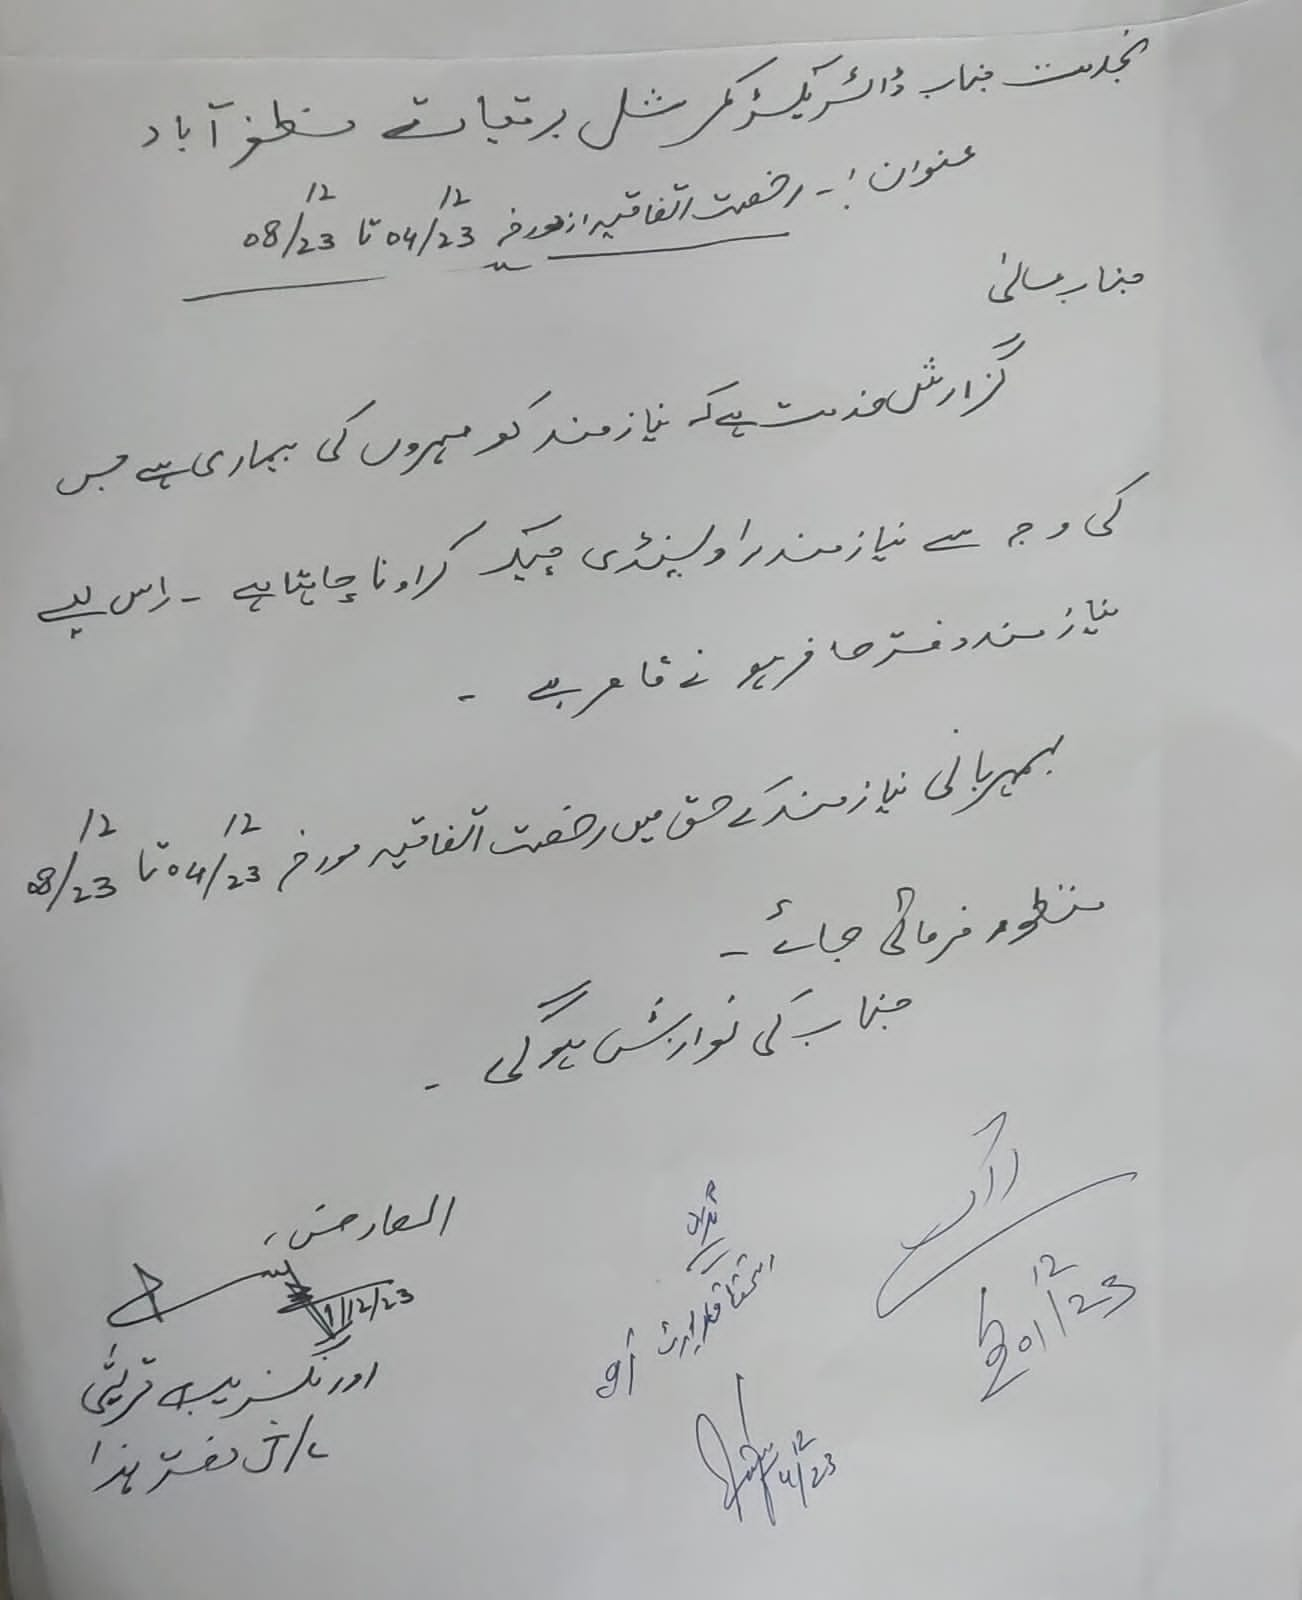 بخدمت جناب ڈائریکٹر کمرشل برقیات مظفر آباد
عنوان :۔ رخصت اتفاقیہ از مورخہ 04/12/23 تا 08/12/23
جناب عالی
گزارش خدمت ہے کہ نیازمند کو مہروں کی بیماری ہے جس
کی وجہ سے نیازمند راولپنڈی چیک کراونا چاہتا ہے ۔ اس لیے
نیازمند دفتر حاضر ہونے قاصر ہے ۔
بمہربانی نیازمند کے حق میں رخصت اتفاقیہ مورخہ 04/12/23 تا 08/12/23
منظور فرمائی جائے ۔
جناب کی نوازش ہوگی ۔
العارض،
1/12/23
اورنگزیب قریشی
دفتر ہذا
01/12/23
4/12/23